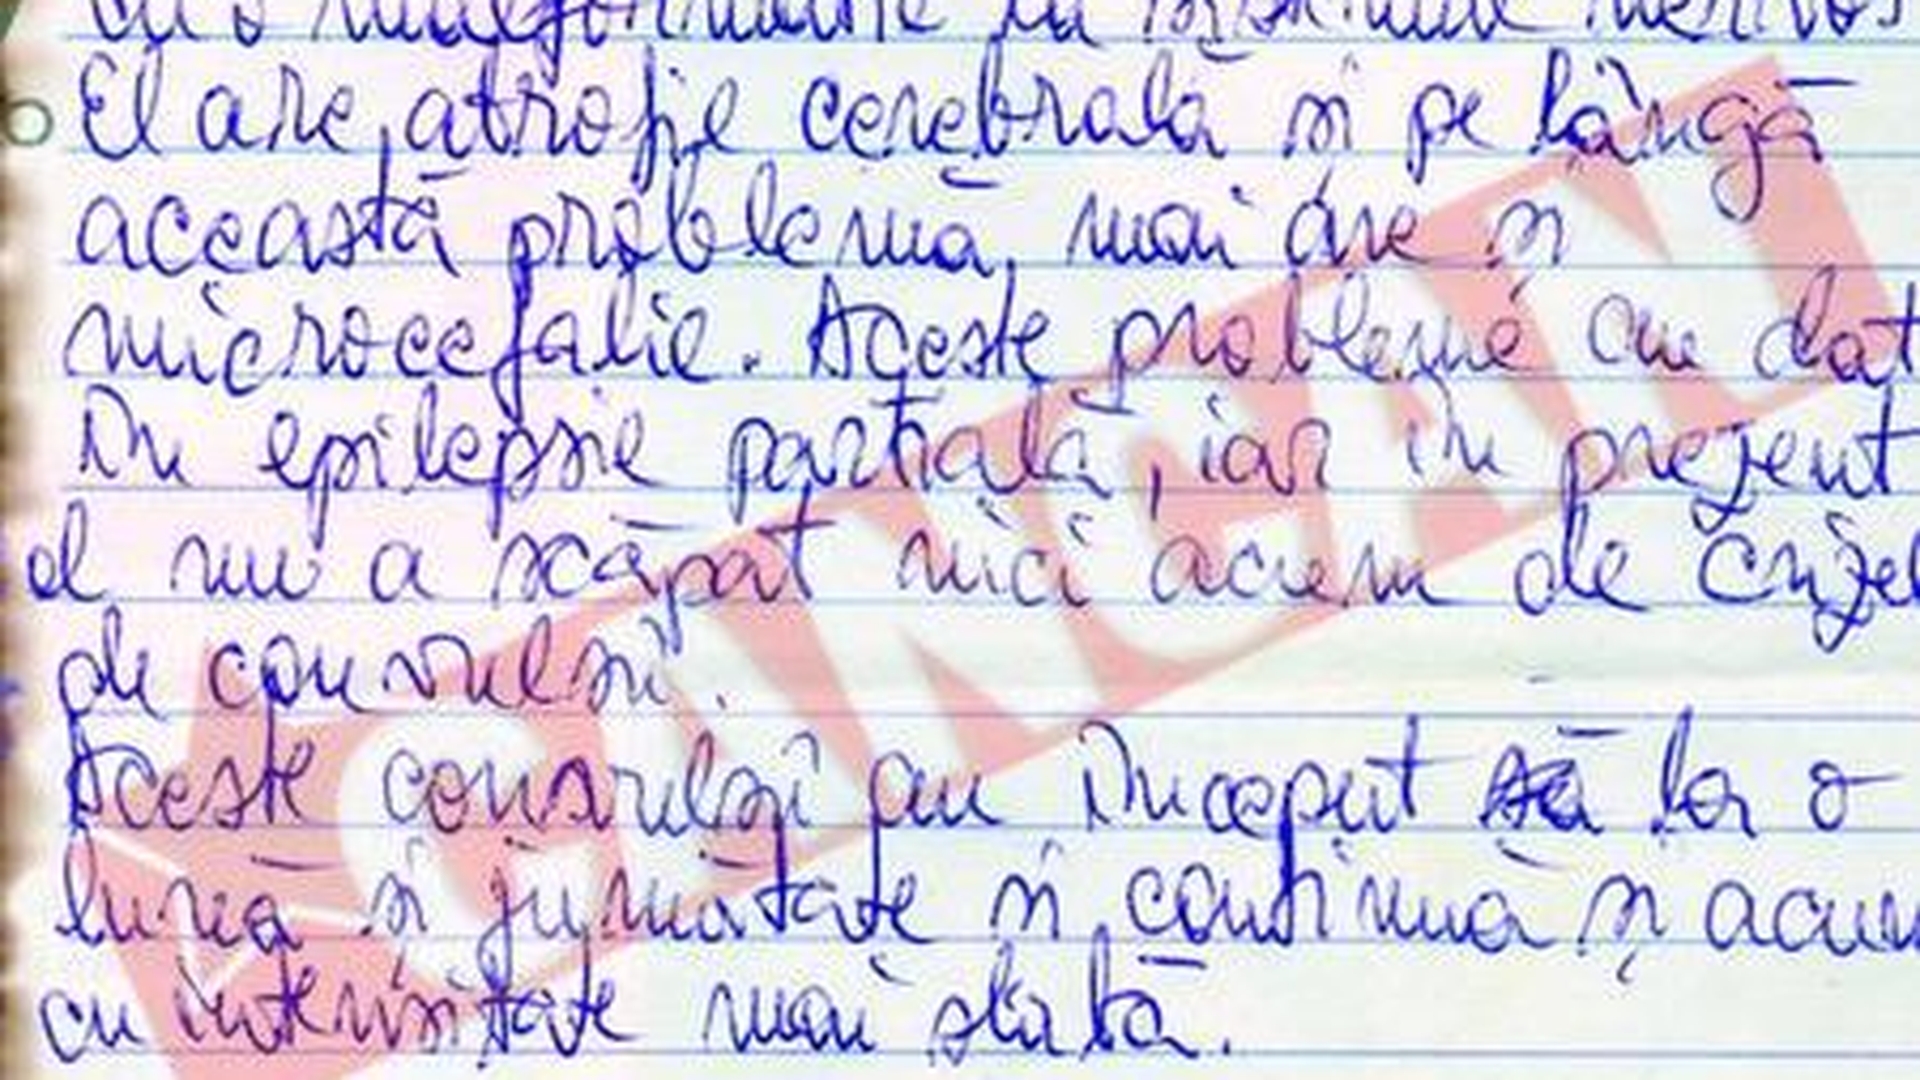 cu o malformatie la sistemul nervos
El are atrofie cerebrală și pe lângă
această problemă, mai are și
microcefalie. Aceste probleme au dat
în epilepsie parțială, iar în prezent
el nu a scăpat nici acum de crizel
de convulsii.
Aceste convulsii au început să la o
lună și jumătate și continuă și acum
cu intensitate mai slabă.
CANCAN